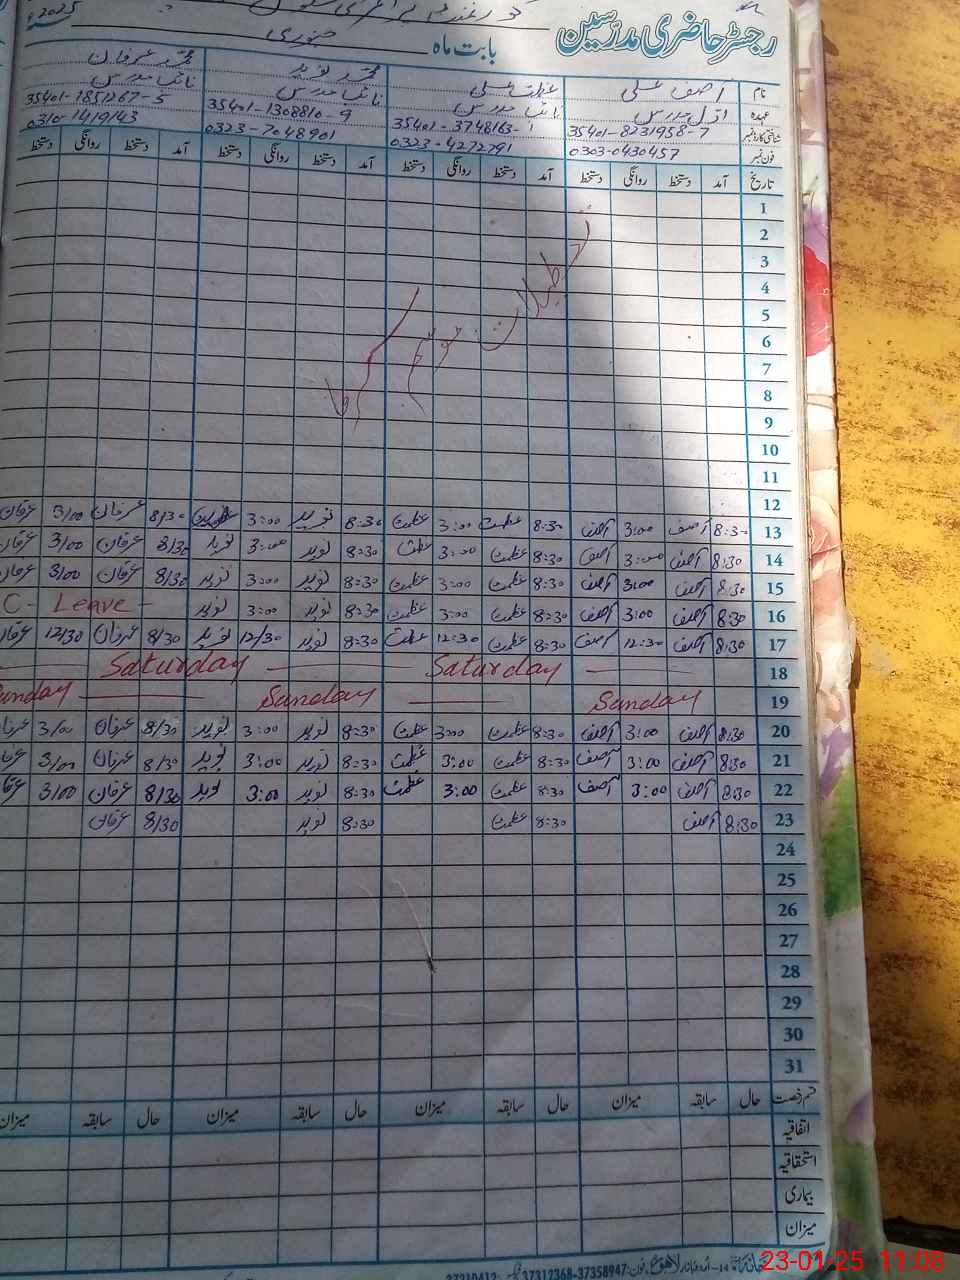 رجسٹر حاضری مدرسین
بابت ماہ جنوری 2025
نام آصف علی عظمت علی محمد نوید محمد عرفان
عہدہ اول مدرس نائب مدرس نائب مدرس نائب مدرس
شناختی کارڈ نمبر 35401-8231958-7 35401-3748163-1 35401-1308810-9 35401-1851267-5
فون نمبر 0303-0430457 0323-4272791 0323-7048901 0310-1419143
تاریخ آمد دستخط روانگی دستخط آمد دستخط روانگی دستخط آمد دستخط روانگی دستخط آمد دستخط روانگی دستخط
1
2
3
4
5
6
7
8
9
10
11
12
تعطیلات موسم سرما
13 8:30 آصف 3:00 آصف 8:30 عظمت 3:00 عظمت 8:30 نوید 3:00 8/30 عرفان 3/00 عرفان
14 8:30 آصف 3:00 آصف 8:30 عظمت 3:00 عظمت 8:30 نوید 3:00 نوید 8/30 عرفان 3/00 عرفان
15 8:30 آصف 3:00 آصف 8:30 عظمت 3:00 عظمت 8:30 نوید 3:00 نوید 8/30 عرفان 3/00 عرفان
16 8:30 آصف 3:00 آصف 8:30 عظمت 3:00 عظمت 8:30 نوید 3:00 نوید C- Leave -
17 8:30 آصف 12:30 آصف 8:30 عظمت 12:30 عظمت 8:30 نوید 12/30 نوید 8/30 عرفان 12/30 عرفان
18 Saturday Saturday
19 Sunday Sunday Sunday
20 8:30 آصف 3:00 آصف 8:30 عظمت 3:00 عظمت 8:30 نوید 3:00 نوید 8/30 عرفان 3/00 عرفان
21 8:30 آصف 3:00 آصف 8:30 عظمت 3:00 عظمت 8:30 نوید 3:00 نوید 8/30 عرفان 3/00 عرفان
22 8:30 آصف 3:00 آصف 8:30 عظمت 3:00 عظمت 8:30 نوید 3:00 نوید 8/30 عرفان 3/00 عرفان
23 8:30 آصف 8:30 عظمت 8:30 نوید 8/30 عرفان
24
25
26
27
28
29
30
31
قسم رخصت حال سابقہ میزان حال سابقہ میزان حال سابقہ میزان حال سابقہ میزان
اتفاقیہ
استحقاقیہ
بیماری
میزان
اردو بازار لاہور فون: 37358947-37312368
23-01-25 11:08